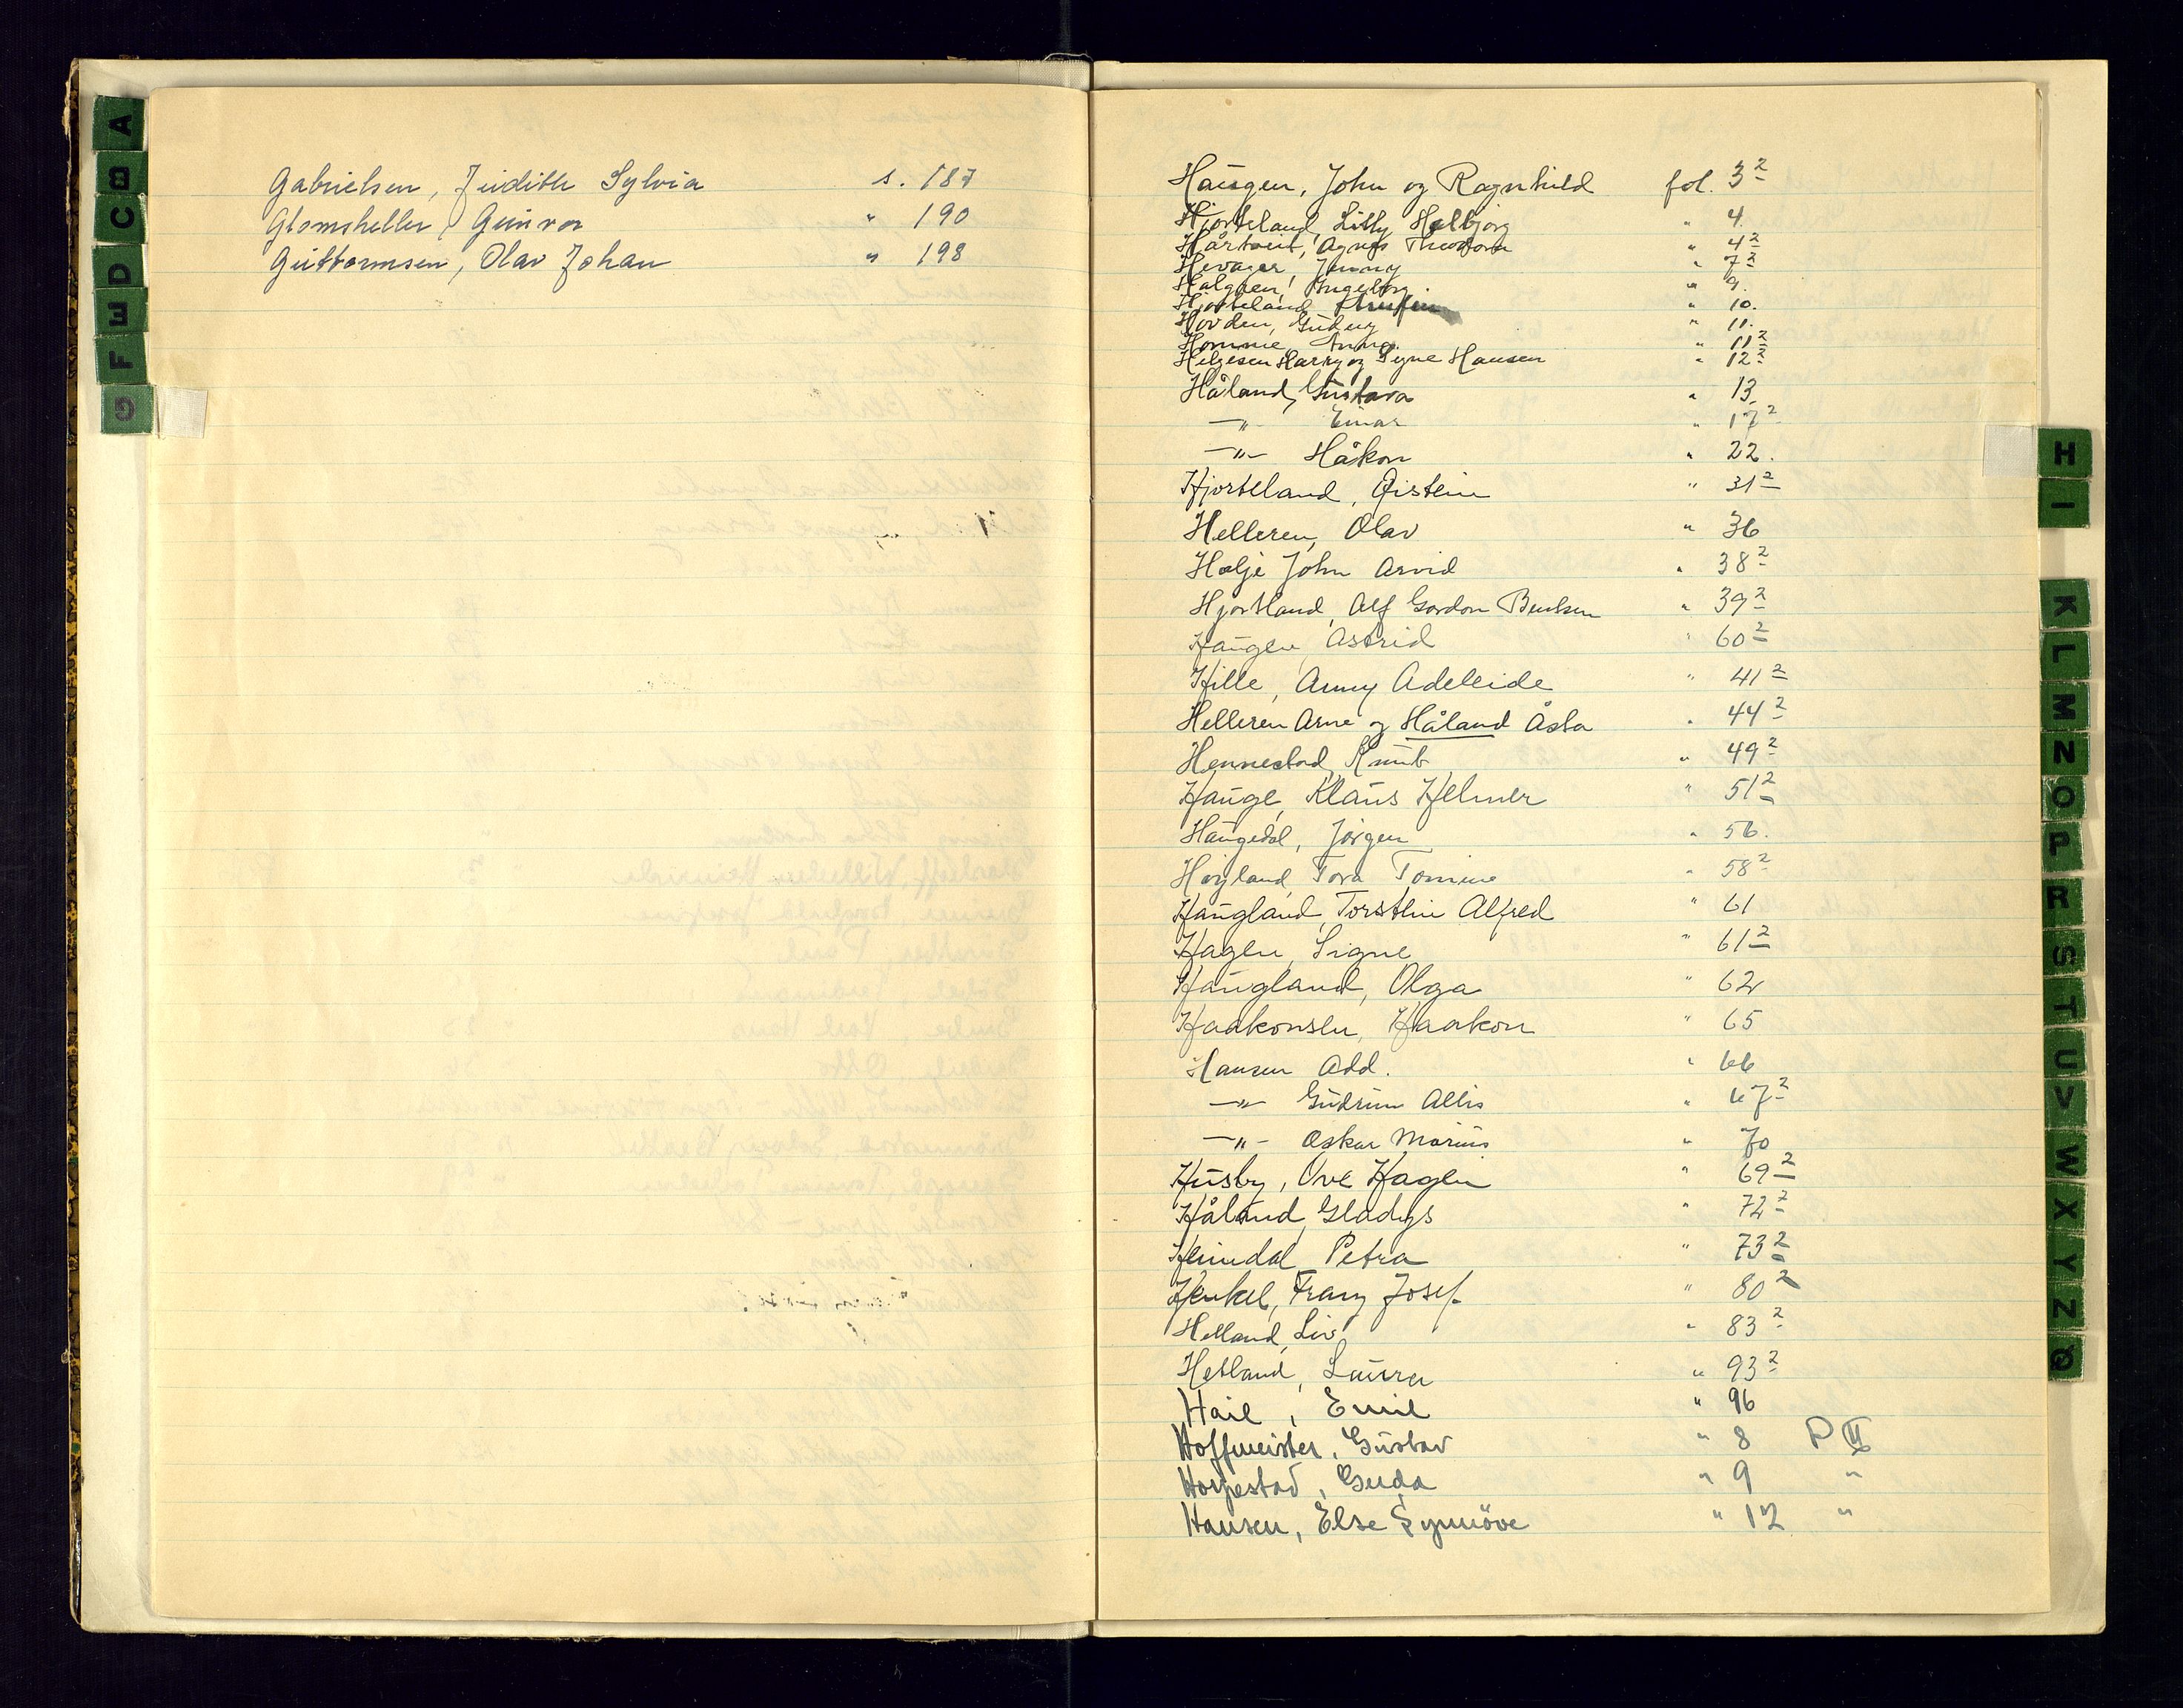 A
B
C
D
E
F
G
Gabrielsen, Judith Sylvia s. 187
Glomsheller, Gunvor " 190
Guttormsen, Olav Johan " 198
Haugen, John og Ragnhild fol. 3²
Hjorteland, Lilly Holbjorg " 4.
Hårtveit, Agnes Theodora " 4²
Hevager, Jenny " 7²
Halgren, Ingeborg. " 9.
Hjorteland " 10.
Hovden, Gudny " 11.
Homme, Anna. " 11²
Helgesen Harry og Signe Hansen " 12²
Håland, Gustava " 13
—"— Einar " 17²
—"— Håkon " 22.
Hjorteland, Øistein " 31²
Helleren, Olav " 36
Holje John Arvid " 38²
Hjortland, Alf Gordon Bentsen " 39²
Haugen, Astrid " 60²
Hille, Anny Adeleide " 41²
Helleren Arne og Håland Åsta " 44²
Hennestad, Knut " 49²
Hauge, Klaus Helmer " 51²
Haugedal, Jørgen " 56.
Høyland, Tora Tomine " 58²
Haugland, Torstein Alfred " 61
Hagen, Signe " 61²
Haugland, Olga " 62
Haakonsen, Haakon " 65
Hansen Add. " 66
—"— Gudrun Allis " 67²
—"— Oskar Marius " 70
Husby, Ove Hagen " 69²
Håland, Gladys " 72²
Heindal Petra " 73²
Henkel, Franz Josef " 80²
Helland, Liv " 83²
Hetland, Laura " 93²
Hail, Emil " 96
Hoffmeister, Gustav " 8 P II
Horpestad, Guda " 9 "
Hansen, Else Synnöve " 12 "
H
I
K
L
M
N
O
P
R
S
T
U
V
W
X
Y
Z
Q